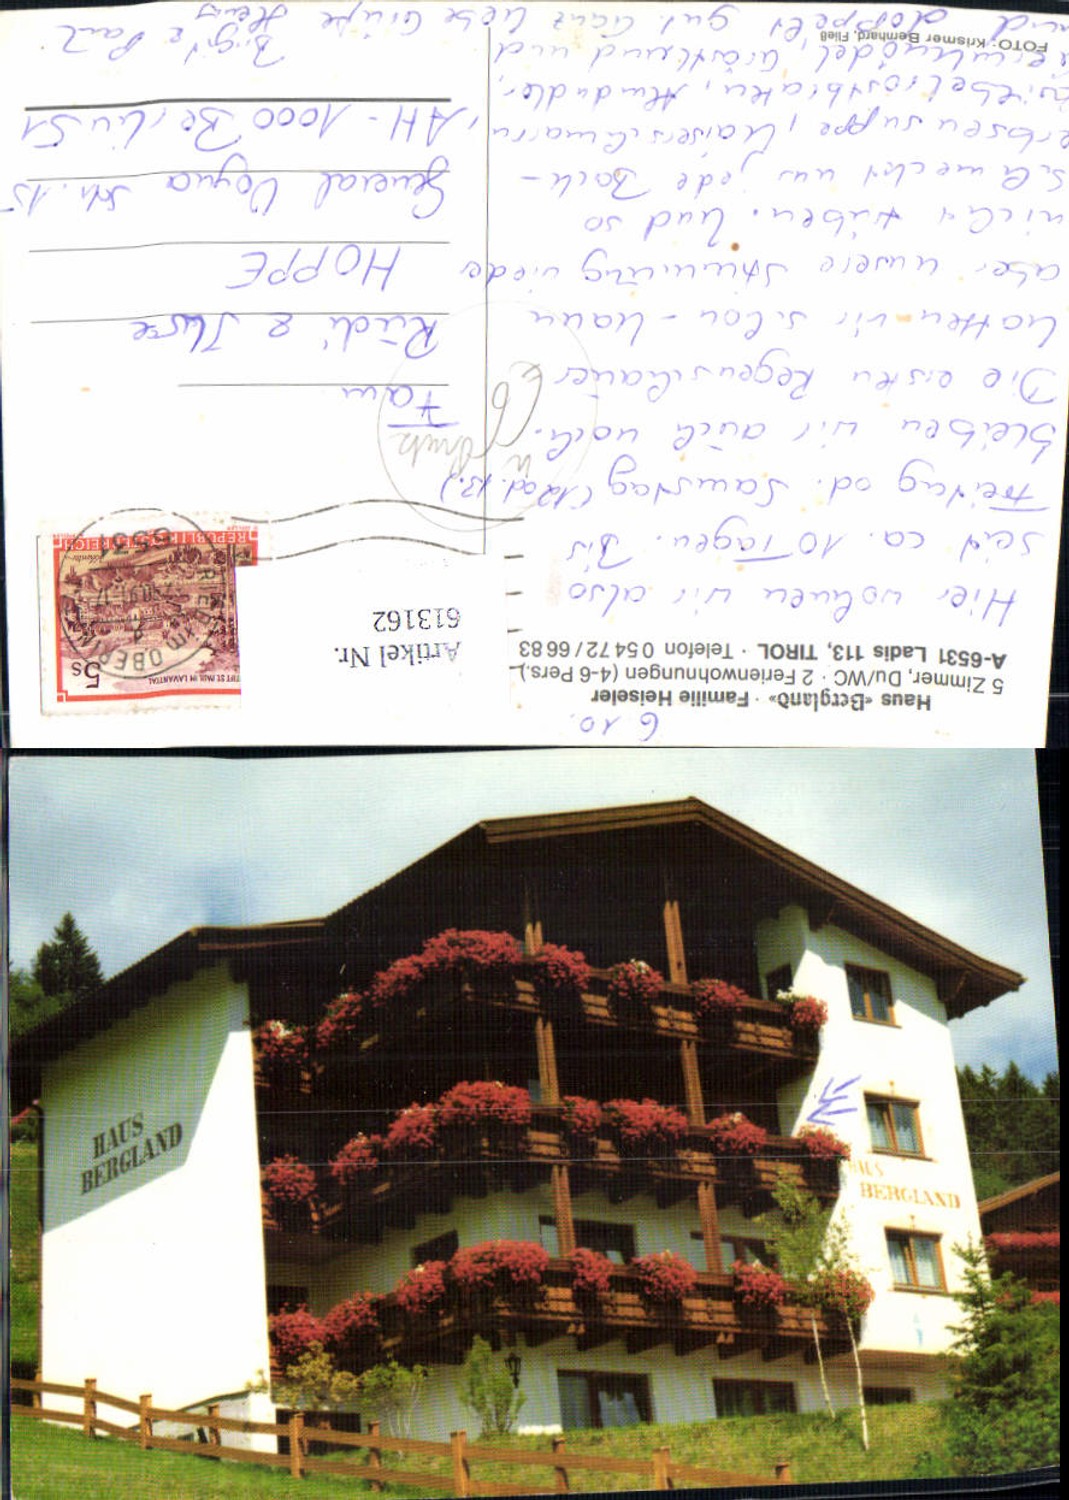 6.10.
Haus «Bergland» · Familie Heiseler
5 Zimmer, Du/WC · 2 Ferienwohnungen (4-6 Pers.)
A-6531 Ladis 113, TIROL · Telefon 0 54 72 / 66 83
Hier wohnen wir also
seit ca. 10 Tagen. Bis
Freitag od. Samstag (12. od. 13.)
bleiben wir auch noch.
Die ersten Regenschauer
hatten wir schon - kann
aber unsere Stimmung nicht
trüben. Und so
schmeckt uns jede Back-
erbsensuppe, Kaiserschmarrn,
Zwiebelrostbraten, Almdudler,
Germknödel, Gröstl und und
und doppelt gut. Ganz liebe Grüße
FOTO: Krismer Bernhard, Fließ
Artikel Nr.
613162
5s
STIFT ST. PAUL IM LAVANTTAL
REPUBLIK ÖSTERREICH
6531
Fam.
Rüdi & Ilse
HOPPE
General Woyna Str. 15
1000 Berlin 51
HAUS
BERGLAND
HAUS
BERGLAND